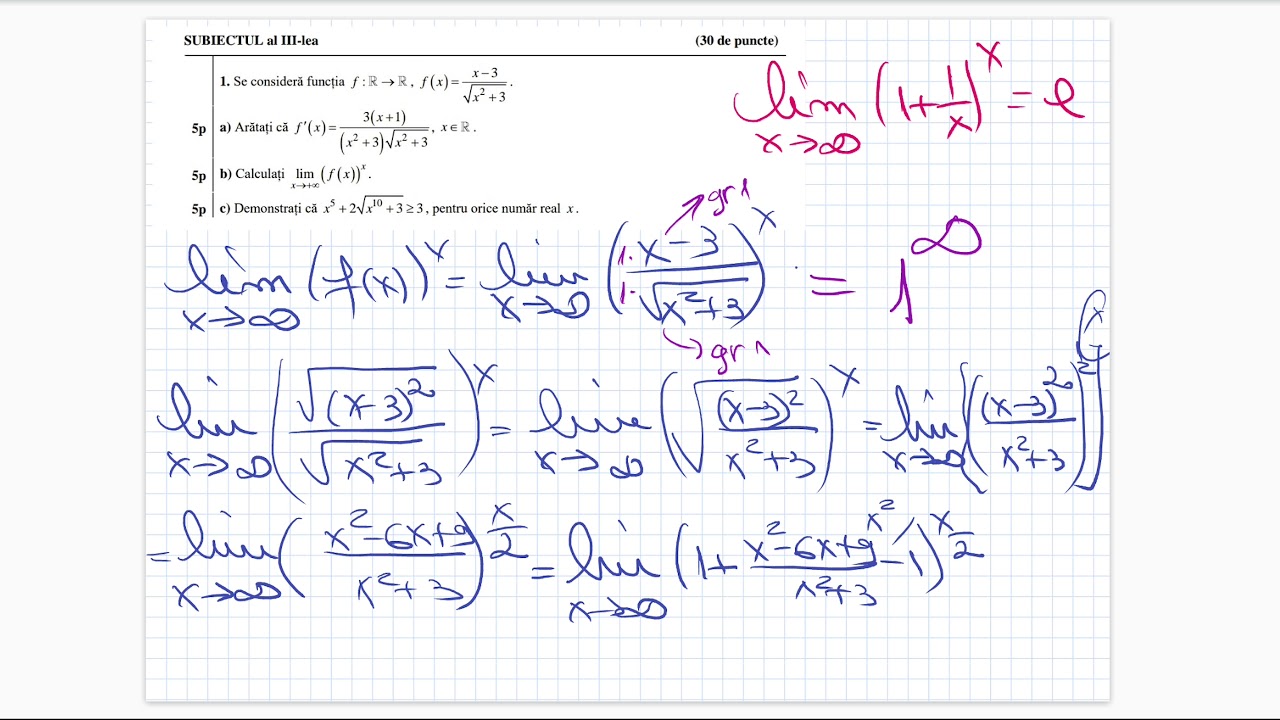 SUBIECTUL al III-lea (30 de puncte)
1. Se consideră funcția f : ℝ → ℝ, f(x) = (x−3)/√(x²+3).
5p a) Arătați că f′(x) = 3(x+1)/((x²+3)√(x²+3)), x ∈ ℝ.
5p b) Calculați lim x→+∞ (f(x))ˣ.
5p c) Demonstrați că x⁵ + 2√(x¹⁰+3) ≥ 3, pentru orice număr real x.
lim x→∞ (1+1/x)^x = e
lim x→∞ (f(x))^x = lim x→∞ ((1·x−3)/(1·√(x²+3)))^x = 1^∞
gr 1
gr 1
lim x→∞ (√((x−3)²)/√(x²+3))^x = lim x→∞ (√((x−3)²/(x²+3)))^x = lim x→∞ [((x−3)²/(x²+3))^½]^x
= lim x→∞ ((x²−6x+9)/(x²+3))^(x/2) = lim x→∞ (1+(x²−6x+9)/(x²+3) − 1)^(x/2)
x²